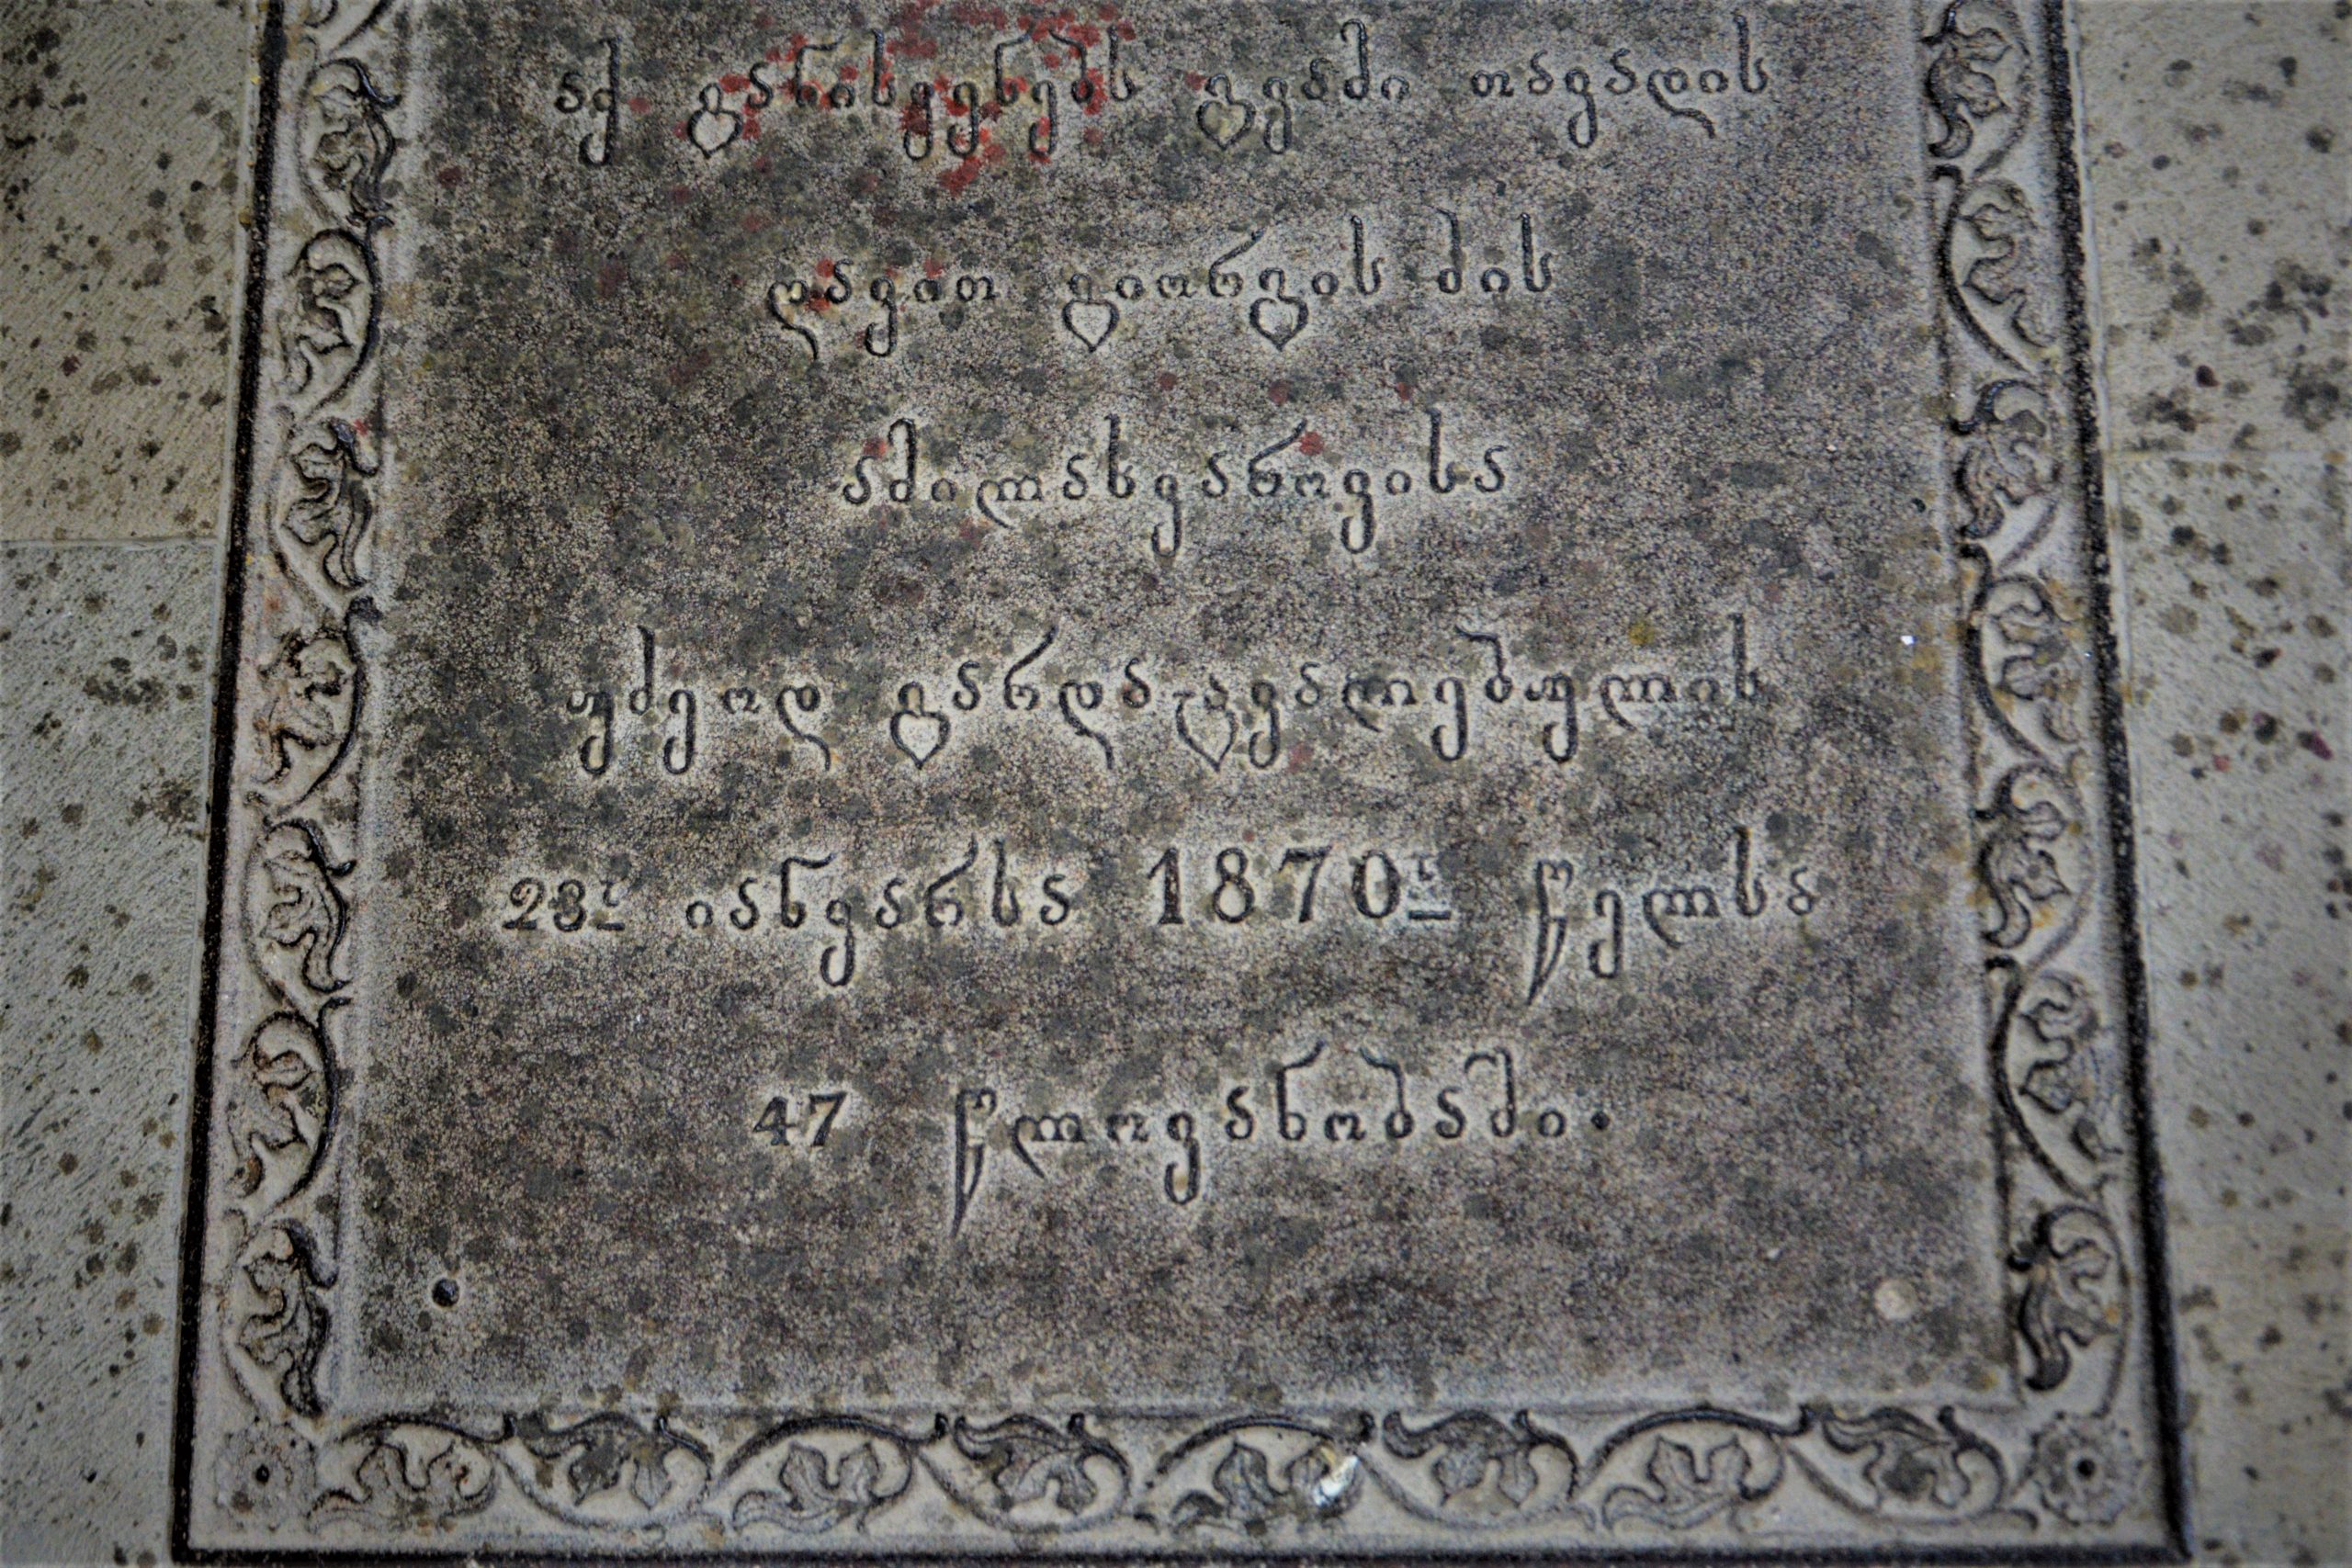 აქ განისვენებს გვამი თავადის
დავით გიორგის ძის
ამილახვაროვისა
უძეოდ გარდაცვალებულის
23ს იანვარსა 1870ს წელსა
47 წლოვანობაში.